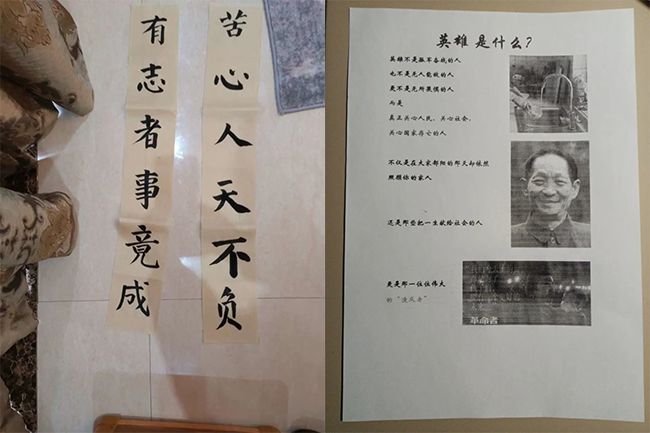 有志者事竟成
苦心人天不负
英雄是什么？
英雄不是跟军奋战的人
也不是无人能敌的人
更不是无所畏惧的人
而是
真正关心人民，关心社会，
关心国家存亡的人
不仅是在大家都烦的那天却依然
照顾你的家人
还是那些把一生献给社会的人
更是那一位位伟大
的“逢风者”
革命者